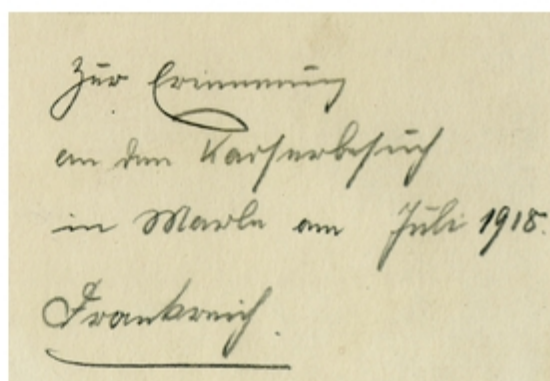 Zur Erinnerung
an den Kaiserbesuch
in Marle am Juli 1918.
Frankreich.